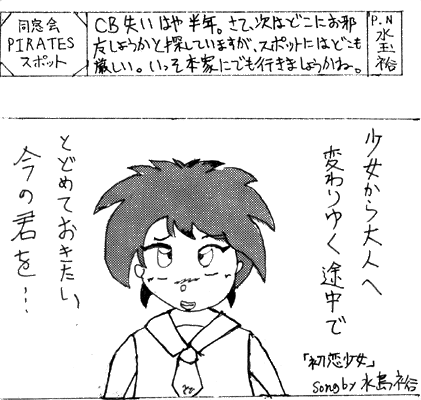 同窓会
PIRATES
スポット
CB失いはや半年。さて、次はどこにお邪
友しようかと探していますが、スポットにはどこも
厳しい。いっそ本家にでも行きましょうかね。
P.N
水玉裕
少女から大人へ
変わりゆく途中で
とどめておきたい
今の君を…
「初恋少女」
Song by 水島裕